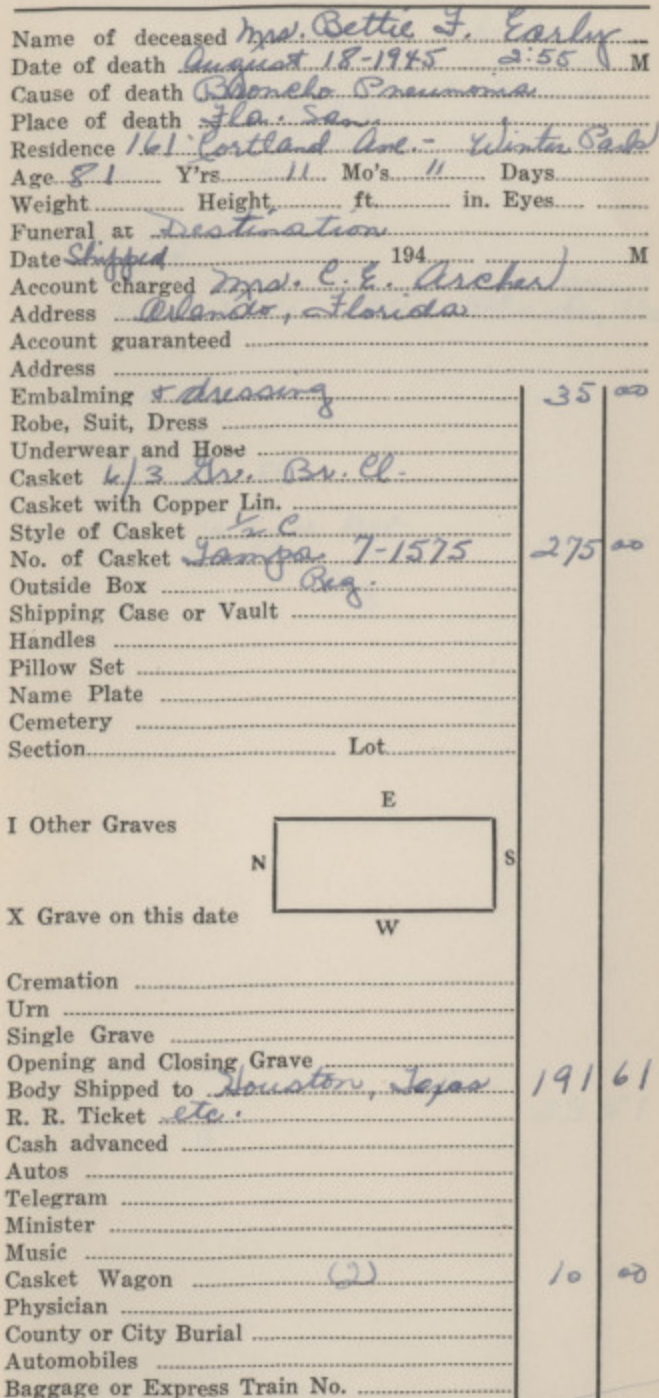 Name of deceased Mrs. Bettie F. Early
Date of death August 18-1945 2:55 M
Cause of death Broncho Pneumonia
Place of death Fla. San.
Residence 161 Cortland Ave. - Winter Park
Age 81 Y'rs 11 Mo's 11 Days
Weight Height ft. in. Eyes
Funeral at Destination
Date Shipped 194 M
Account charged Mrs. C. E. Archer
Address Orlando, Florida
Account guaranteed
Address
Embalming & dressing 35 00
Robe, Suit, Dress
Underwear and Hose
Casket 6/3 Gr. Br. Cl.
Casket with Copper Lin.
Style of Casket 1/2 C
No. of Casket Tampa 7-1575 275 00
Outside Box Reg.
Shipping Case or Vault
Handles
Pillow Set
Name Plate
Cemetery
Section Lot
E
I Other Graves
N S
X Grave on this date
W
Cremation
Urn
Single Grave
Opening and Closing Grave
Body Shipped to Houston, Texas 191 61
R. R. Ticket etc.
Cash advanced
Autos
Telegram
Minister
Music
Casket Wagon (2) 10 00
Physician
County or City Burial
Automobiles
Baggage or Express Train No.